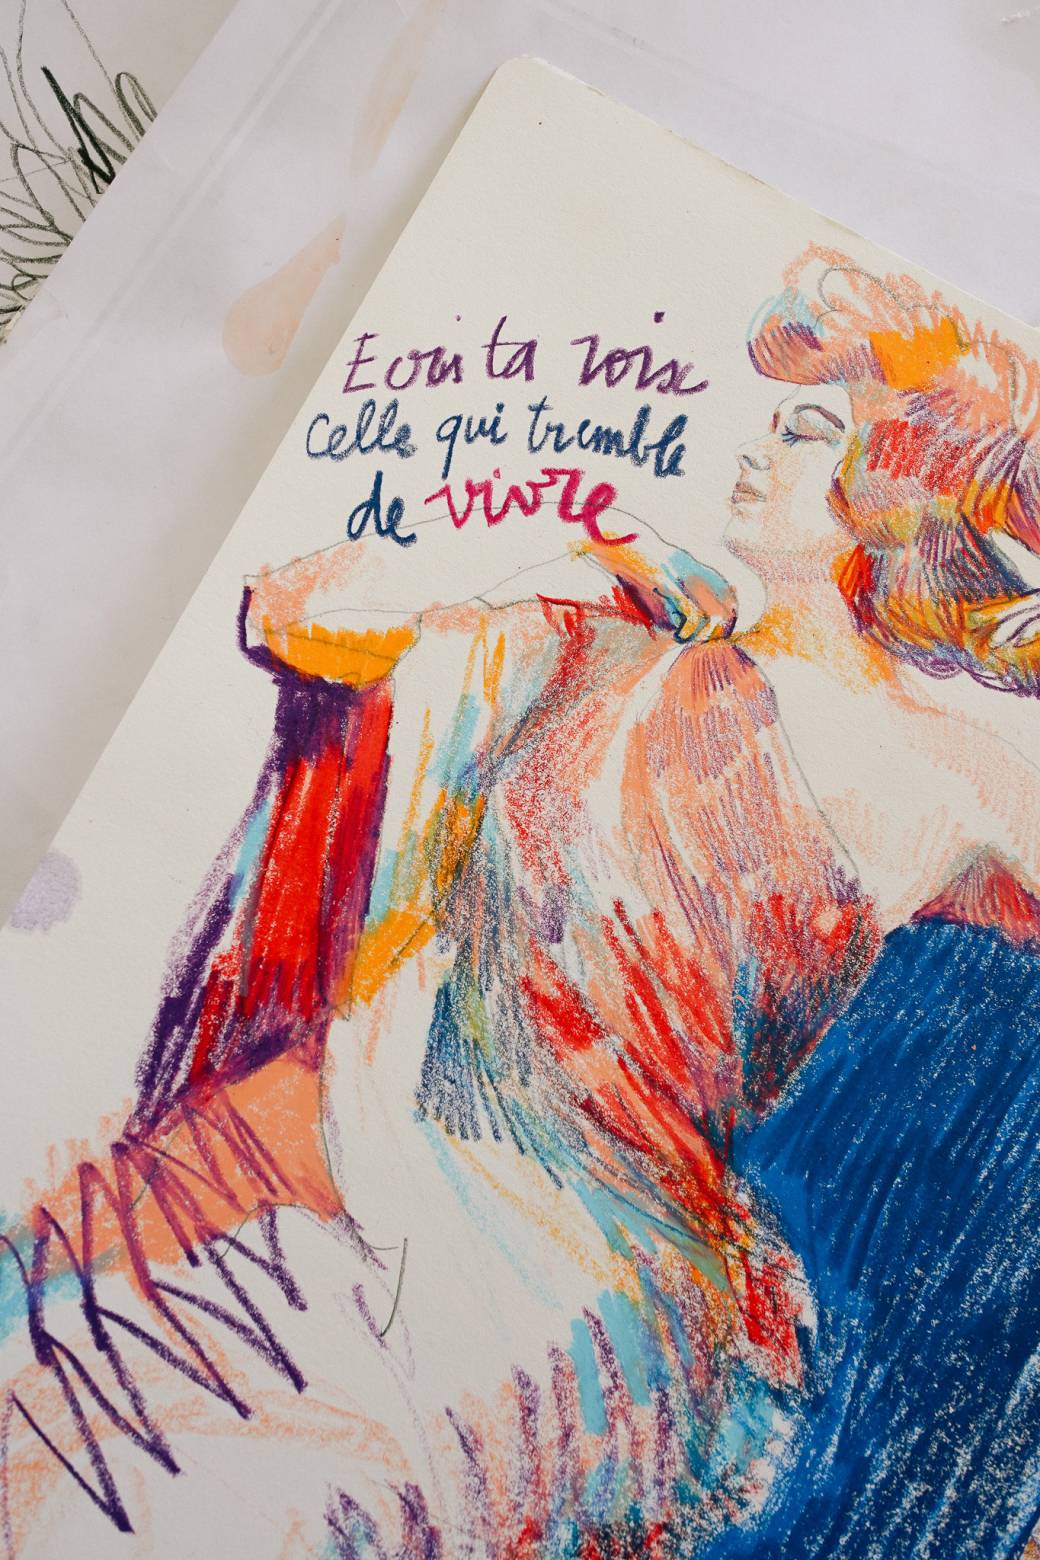 Ecris ta voix
celle qui tremble
de vivre